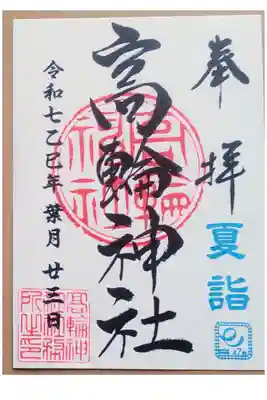 奉拝
夏詣
高輪神社
令和七乙巳年 葉月 廿三日
高輪神
社社務
所之印